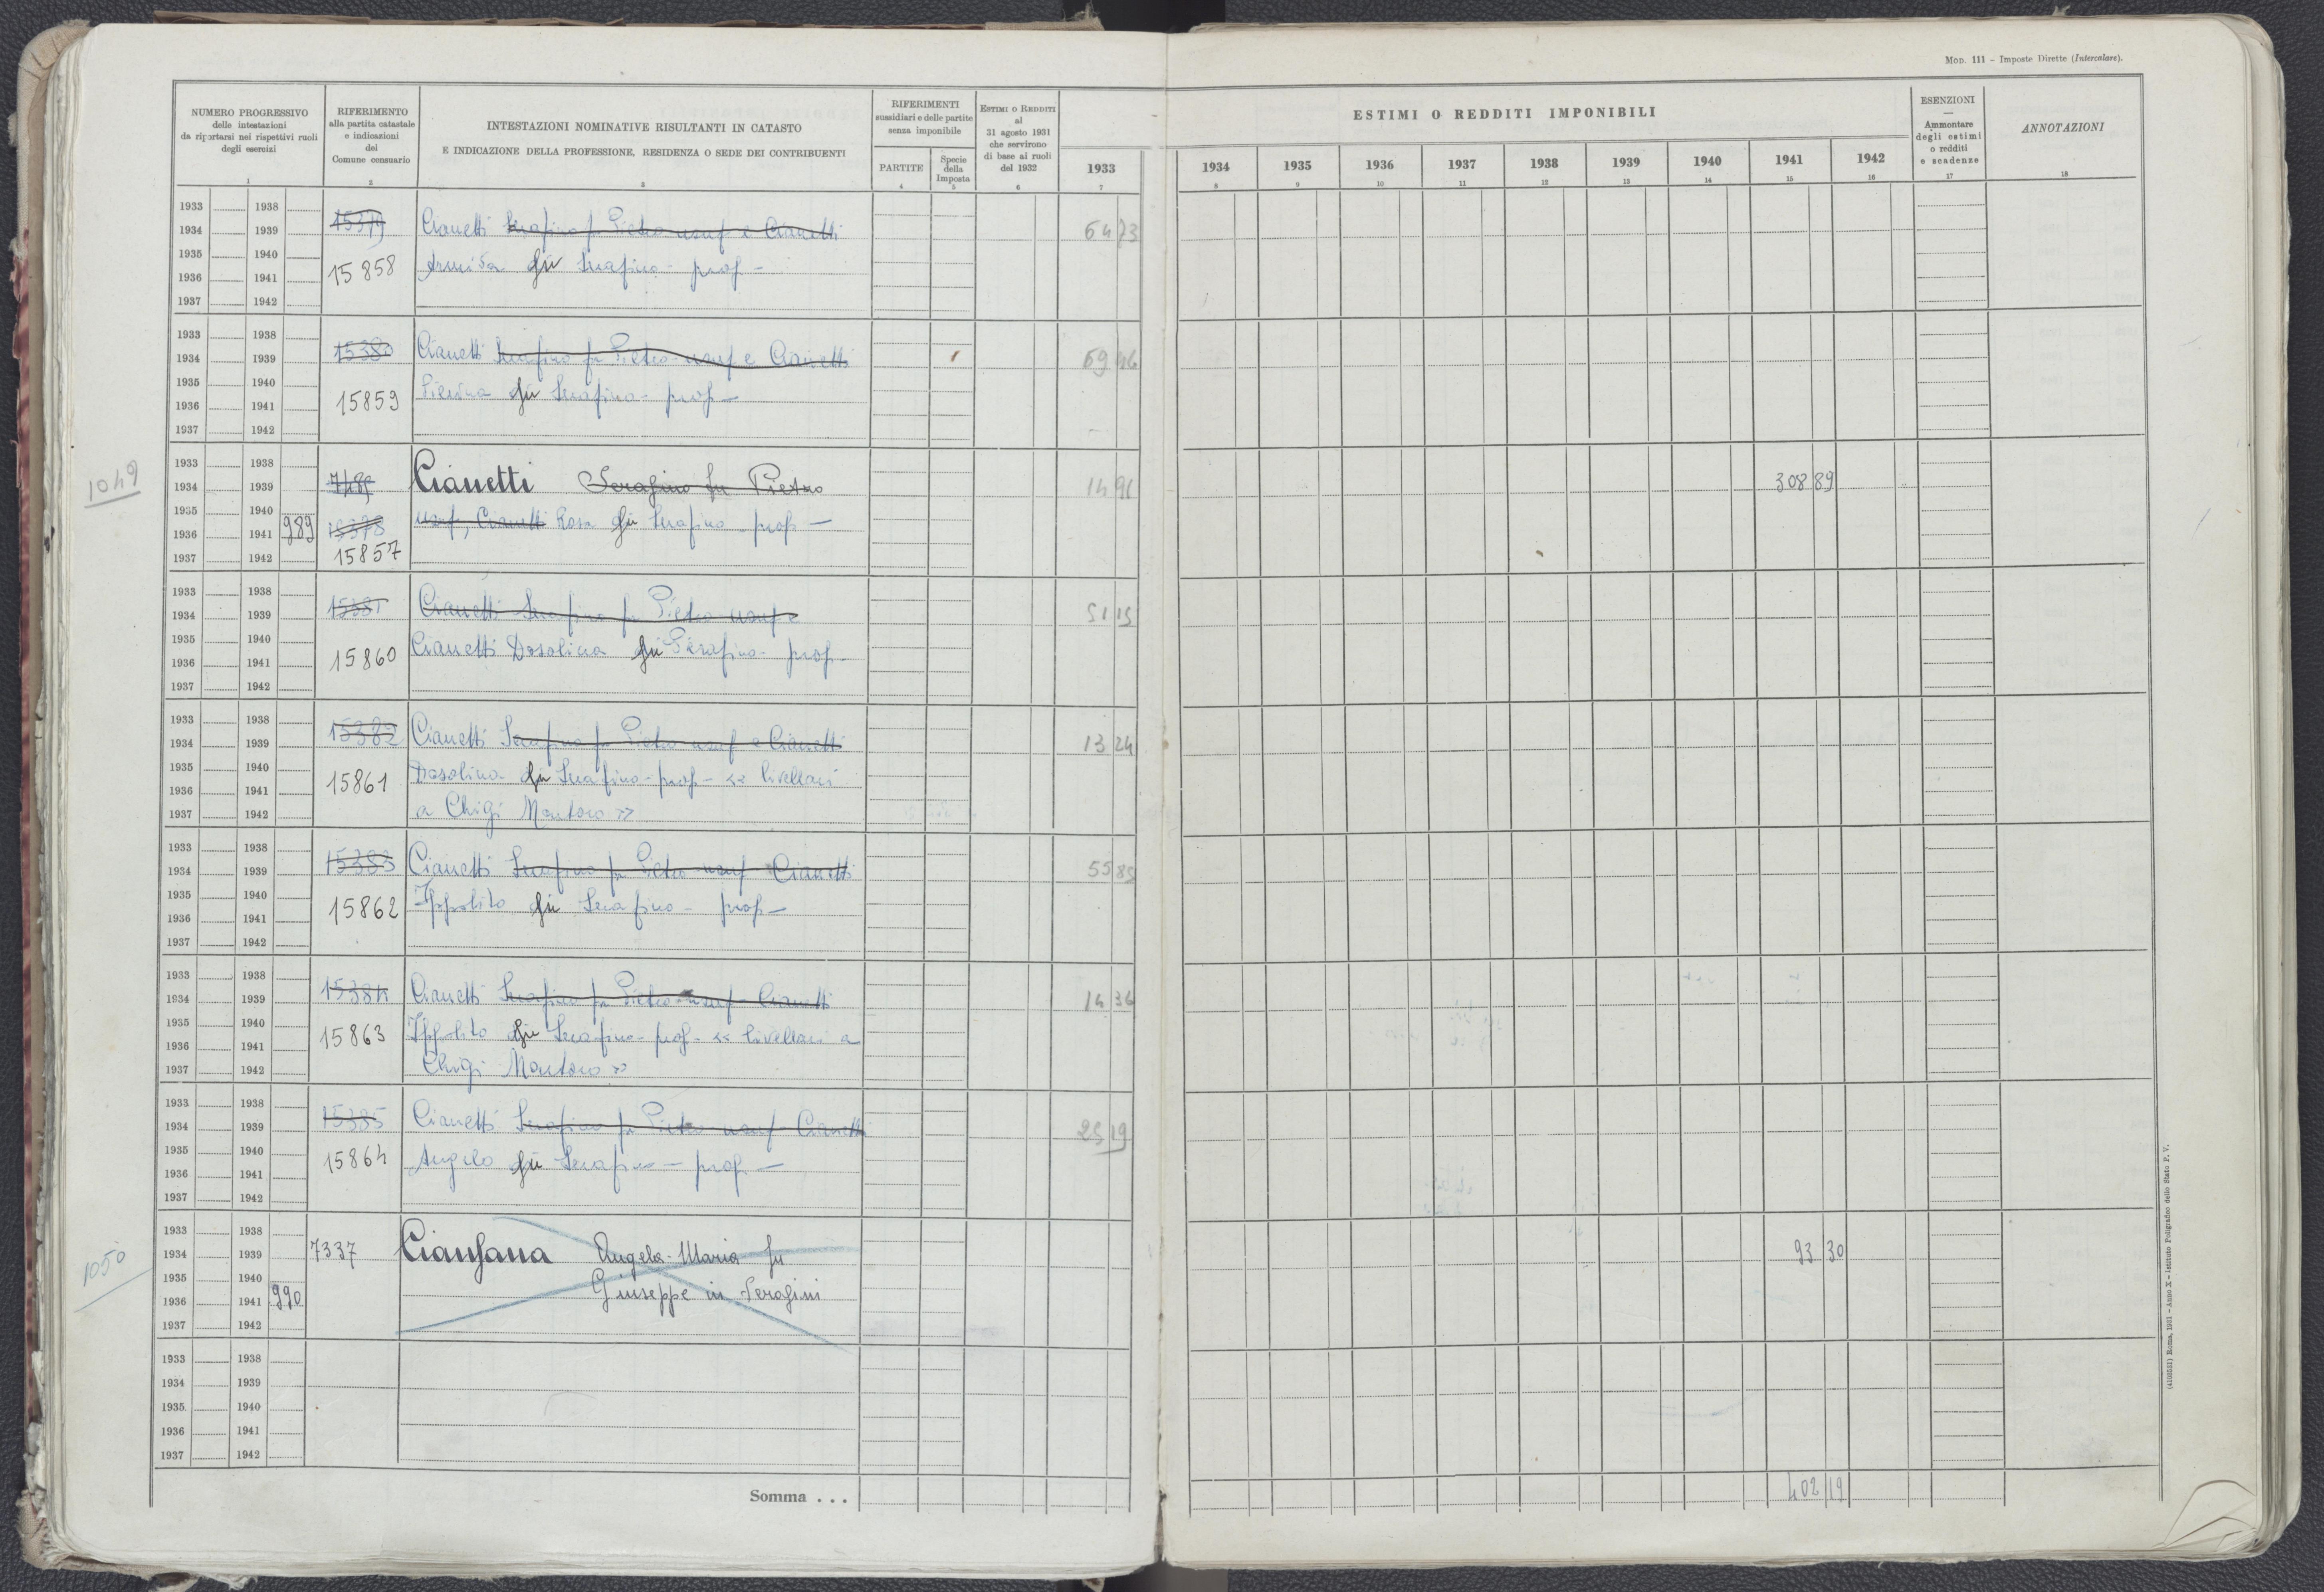 MOD. 111 - Imposte Dirette (Intercalare).
NUMERO PROGRESSIVO
delle intestazioni
da riportarsi nei rispettivi ruoli
degli esercizi
1
RIFERIMENTO
alla partita catastale
e indicazioni
del
Comune censuario
2
INTESTAZIONI NOMINATIVE RISULTANTI IN CATASTO
E INDICAZIONE DELLA PROFESSIONE, RESIDENZA O SEDE DEI CONTRIBUENTI
3
RIFERIMENTI
sussidiari e delle partite
senza imponibile
PARTITE
4
Specie
della
Imposta
5
ESTIMI O REDDITI
al
31 agosto 1931
che servirono
di base ai ruoli
del 1932
6
ESTIMI O REDDITI IMPONIBILI
1933 1934 1935 1936 1937 1938 1939 1940 1941 1942
7 8 9 10 11 12 13 14 15 16
ESENZIONI
—
Ammontare
degli estimi
o redditi
e scadenze
17
ANNOTAZIONI
18
1933 1938
1934 1939 15379 Cianetti Serafino fu Pietro usuf e Cianetti 64 73
1935 1940
1936 1941 15858 Armida fu Serafino - prop -
1937 1942
1933 1938
1934 1939 15380 Cianetti Serafino fu Pietro usuf e Cianetti 69 46
1935 1940
1936 1941 15859 Pierina fu Serafino - prop -
1937 1942
1049
1933 1938
1934 1939 7485 Cianetti Serafino fu Pietro 14 91 308 89
1935 1940
1936 1941 989 15378 usuf, Cianetti Rosa fu Serafino prop -
1937 1942 15857
1933 1938
1934 1939 15381 Cianetti Serafino fu Pietro usuf e 51 15
1935 1940
1936 1941 15860 Cianetti Dosolina fu Serafino - prop -
1937 1942
1933 1938
1934 1939 15382 Cianetti Serafino fu Pietro usuf e Cianetti 13 24
1935 1940
1936 1941 15861 Dosolina fu Serafino - prop - « livellari
1937 1942 a Chigi Montoro »
1933 1938
1934 1939 15383 Cianetti Serafino fu Pietro usuf Cianetti 55 85
1935 1940
1936 1941 15862 Ippolito fu Serafino - prop -
1937 1942
1933 1938
1934 1939 15384 Cianetti Serafino fu Pietro usuf Cianetti 14 36
1935 1940
1936 1941 15863 Ippolito fu Serafino - prop - « livellari a
1937 1942 Chigi Montoro »
1933 1938
1934 1939 15385 Cianetti Serafino fu Pietro usuf Cianetti 25 19
1935 1940
1936 1941 15864 Angelo fu Serafino - prop -
1937 1942
1050
1933 1938
1934 1939 7337 Cianfana Angela Maria fu 93 30
1935 1940
1936 1941 990 Giuseppe in Serafini
1937 1942
1933 1938
1934 1939
1935 1940
1936 1941
1937 1942
Somma . . . 402 19
Roma, 1931 - Anno X - Istituto Poligrafico dello Stato P. V.